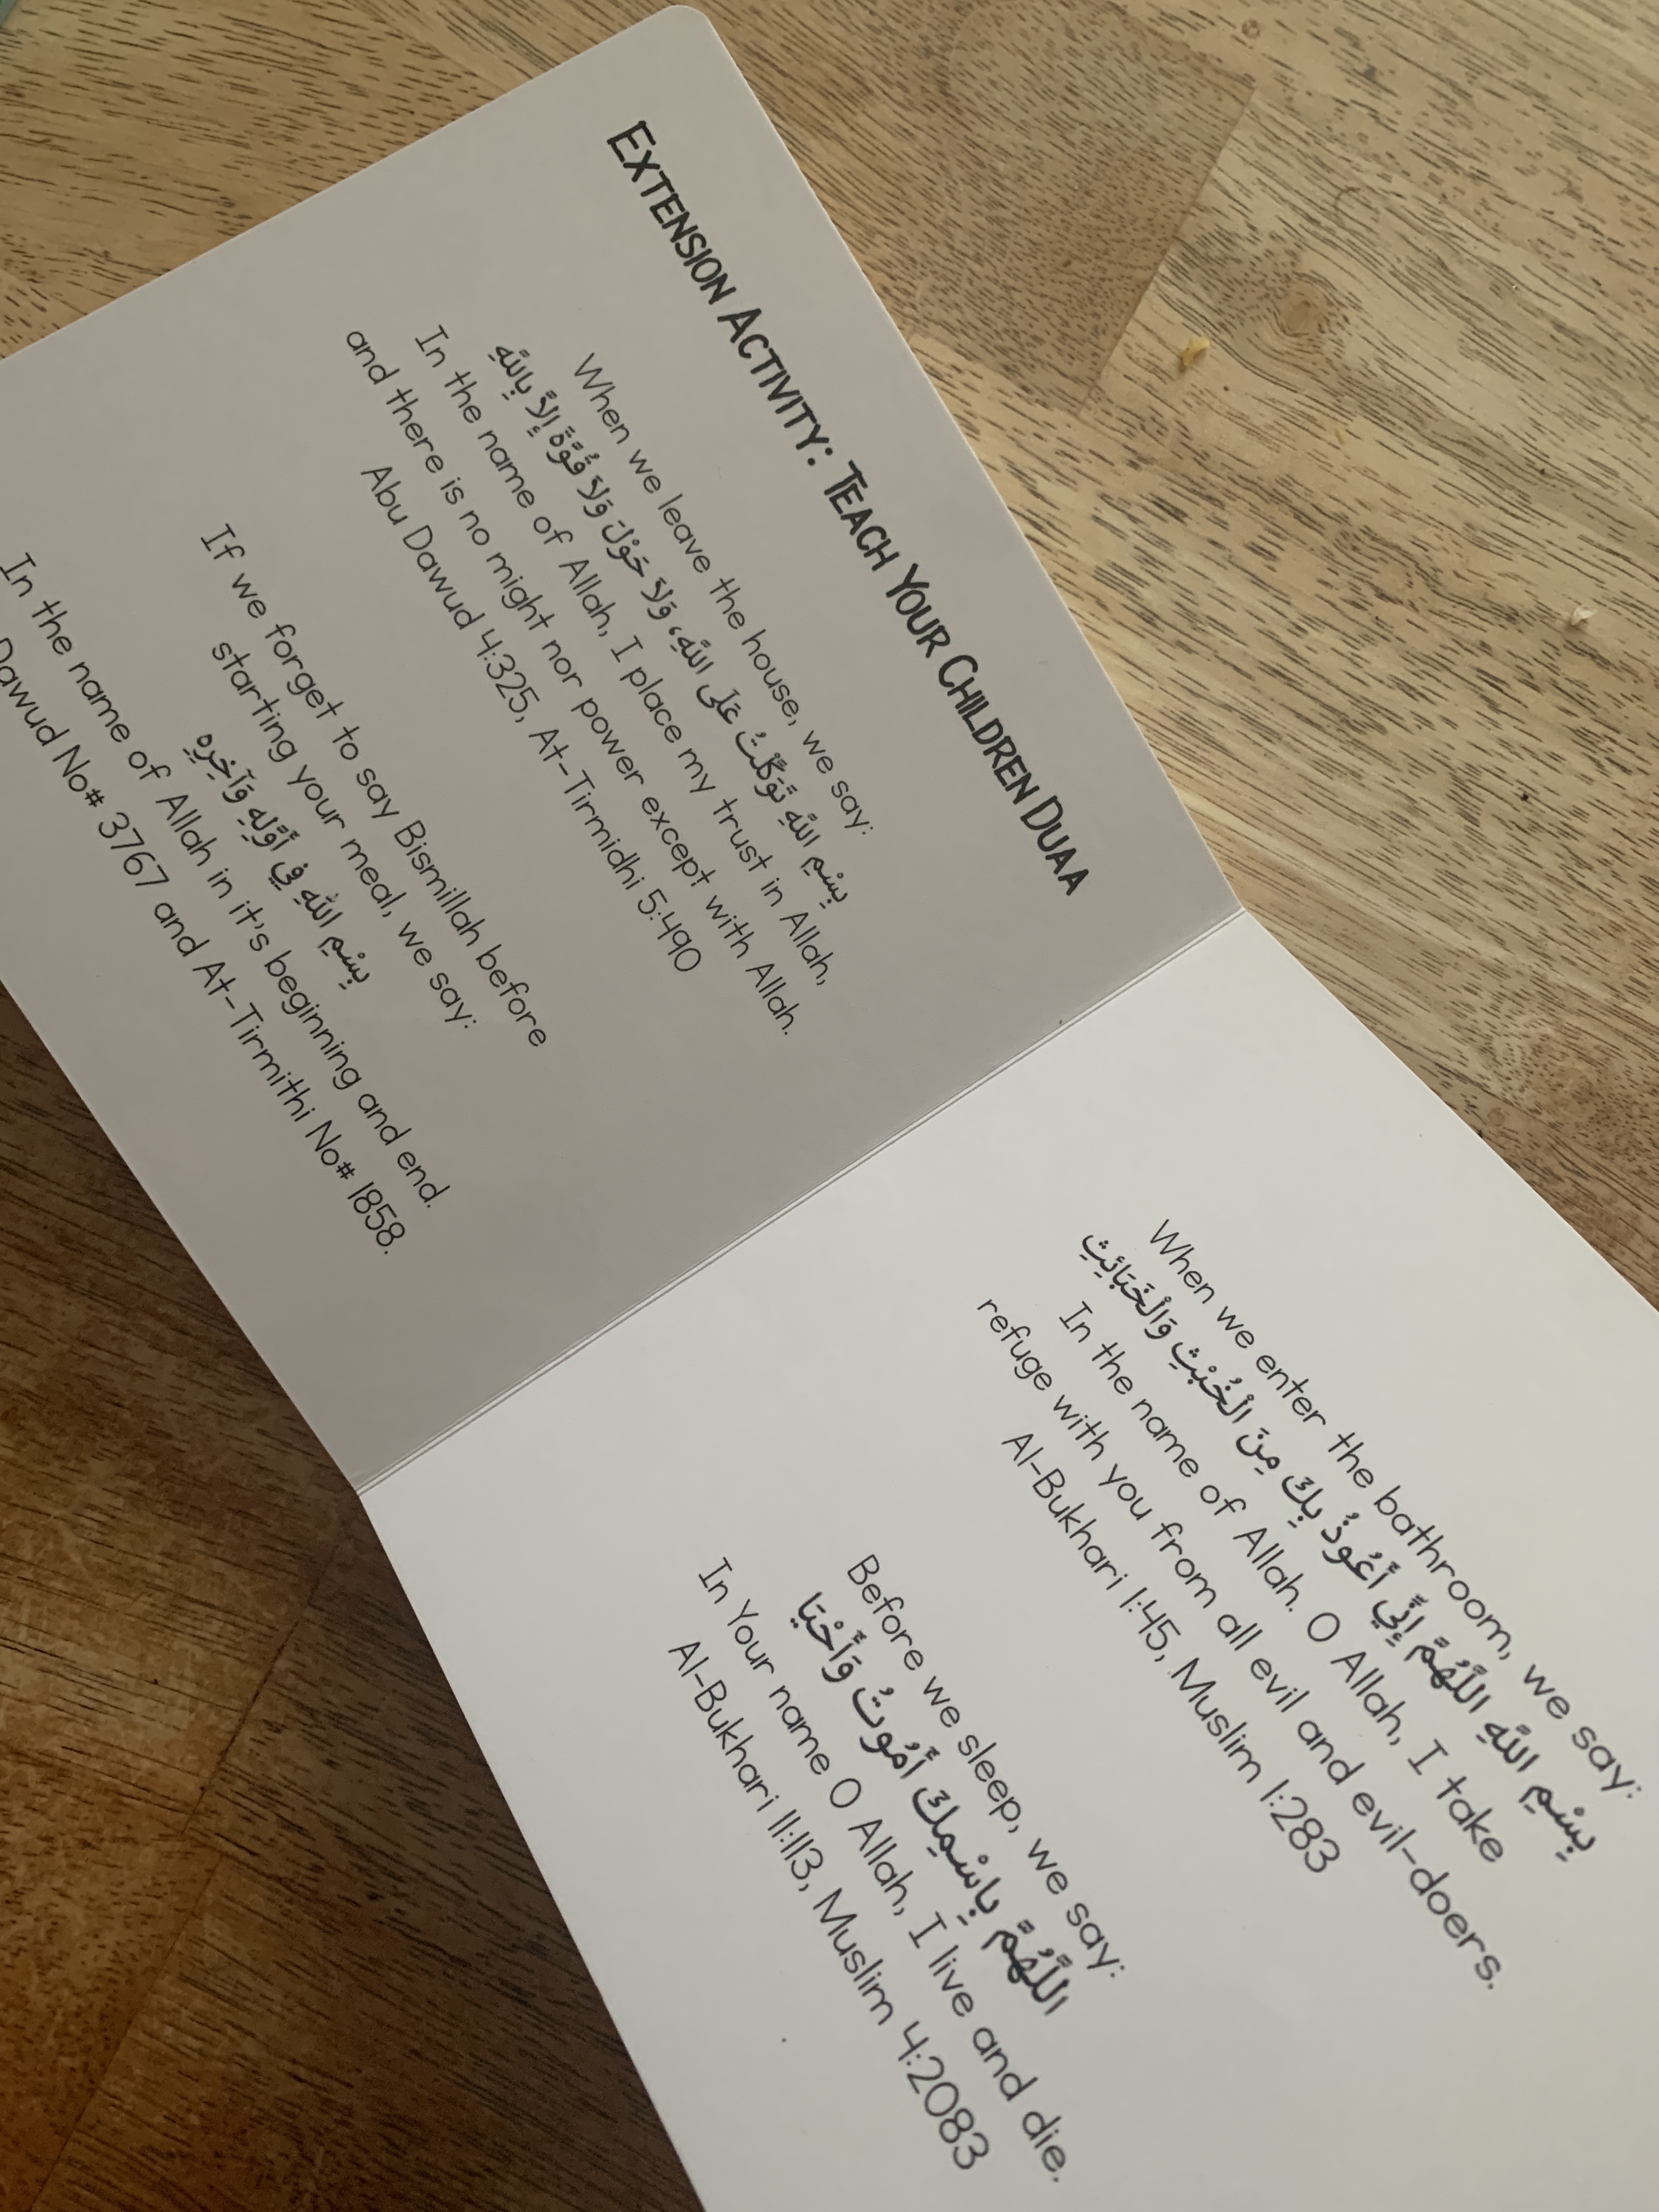 EXTENSION ACTIVITY: TEACH YOUR CHILDREN DUAA
When we leave the house, we say:
بِسْمِ اللَّهِ تَوَكَّلْتُ عَلَى اللَّهِ، وَلَا حَوْلَ وَلَا قُوَّةَ إِلاَّ بِاللَّهِ
In the name of Allah, I place my trust in Allah,
and there is no might nor power except with Allah.
Abu Dawud 4:325, At-Tirmidhi 5:490
If we forget to say Bismillah before
starting your meal, we say:
بِسْمِ اللَّهِ فِي أَوَّلِهِ وَآخِرِهِ
In the name of Allah in it's beginning and end.
Dawud No# 3767 and At-Tirmithi No# 1858.
When we enter the bathroom, we say:
بِسْمِ اللَّهِ اللَّهُمَّ إِنِّي أَعُوذُ بِكَ مِنَ الْخُبْثِ وَالْخَبَائِثِ
In the name of Allah. O Allah, I take
refuge with you from all evil and evil-doers.
Al-Bukhari 1:45, Muslim 1:283
Before we sleep, we say:
اللَّهُمَّ بِاسْمِكَ أَمُوتُ وَأَحْيَا
In Your name O Allah, I live and die.
Al-Bukhari 11:113, Muslim 4:2083